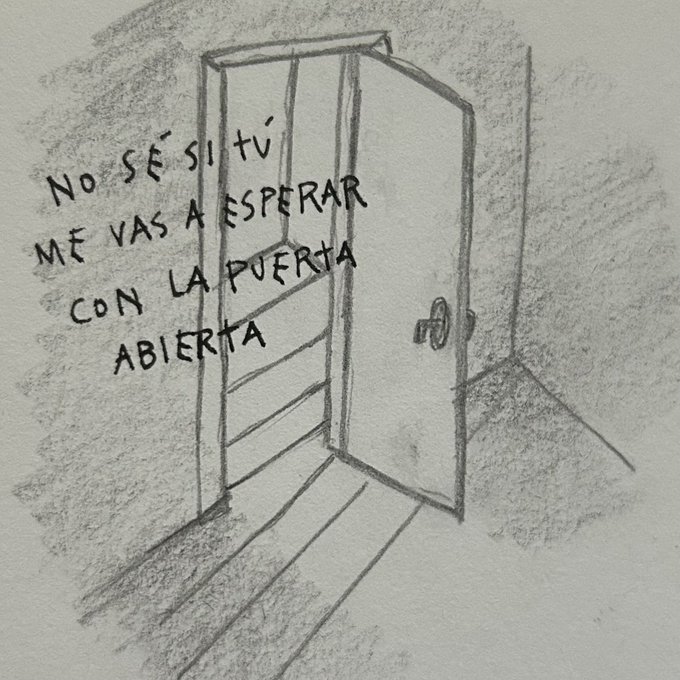 NO SÉ SI TÚ
ME VAS A ESPERAR
CON LA PUERTA
ABIERTA